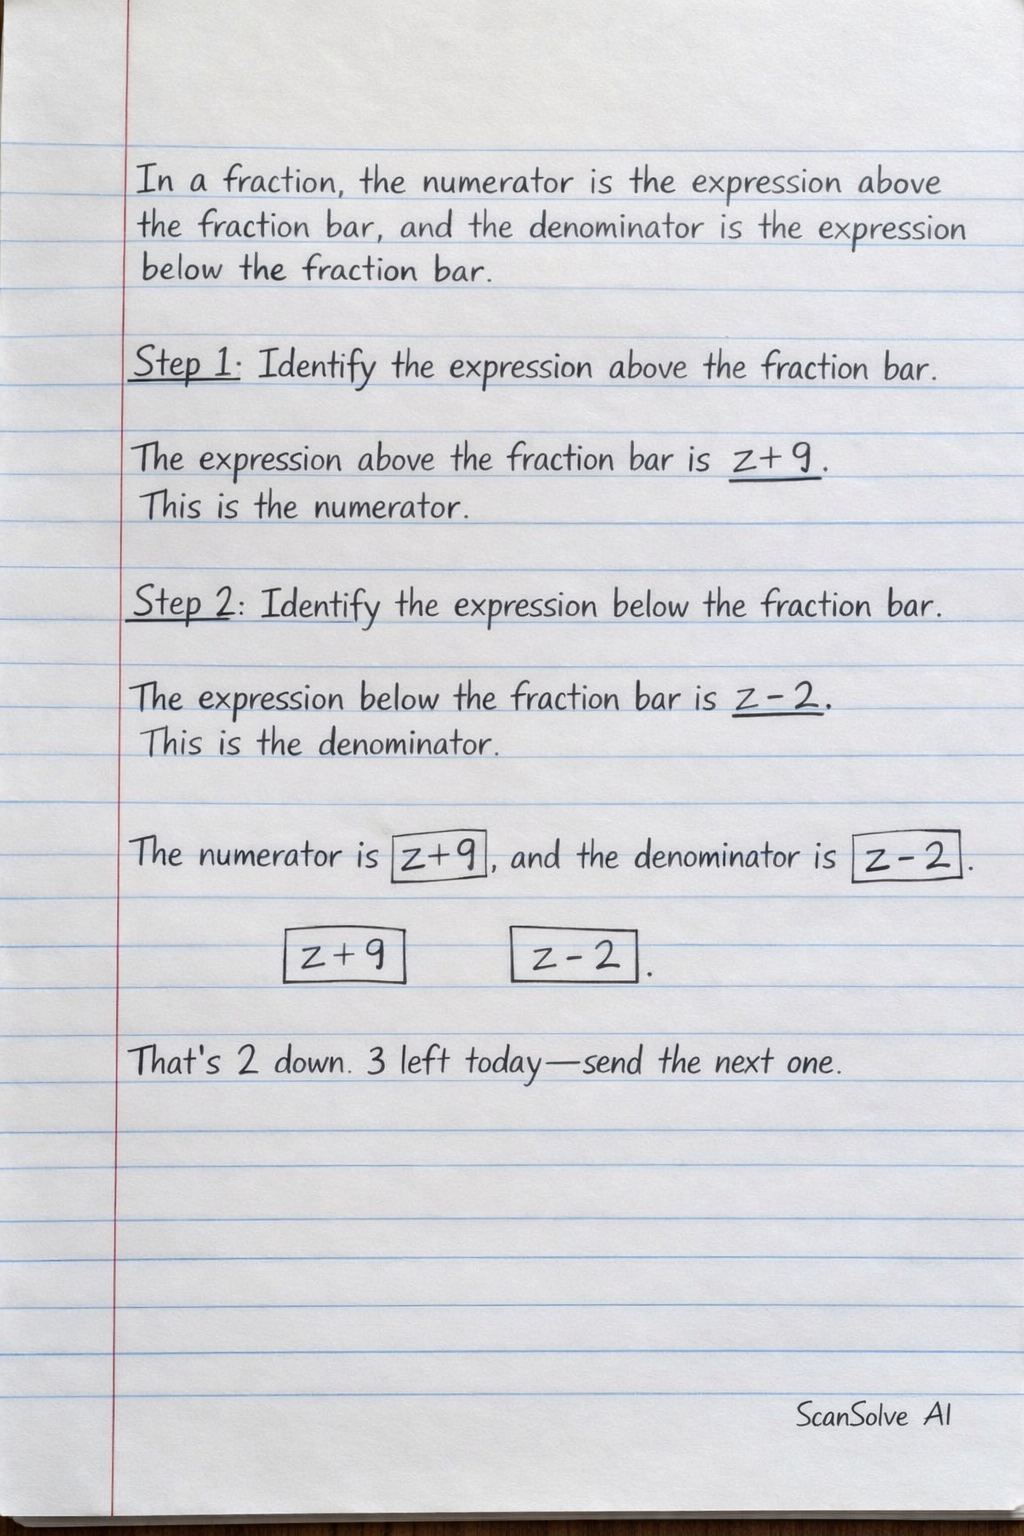 In a fraction, the numerator is the expression above
the fraction bar, and the denominator is the expression
below the fraction bar.
Step 1: Identify the expression above the fraction bar.
The expression above the fraction bar is z+9.
This is the numerator.
Step 2: Identify the expression below the fraction bar.
The expression below the fraction bar is z-2.
This is the denominator.
The numerator is z+9, and the denominator is z-2.
z+9 z-2.
That's 2 down. 3 left today—send the next one.
ScanSolve AI